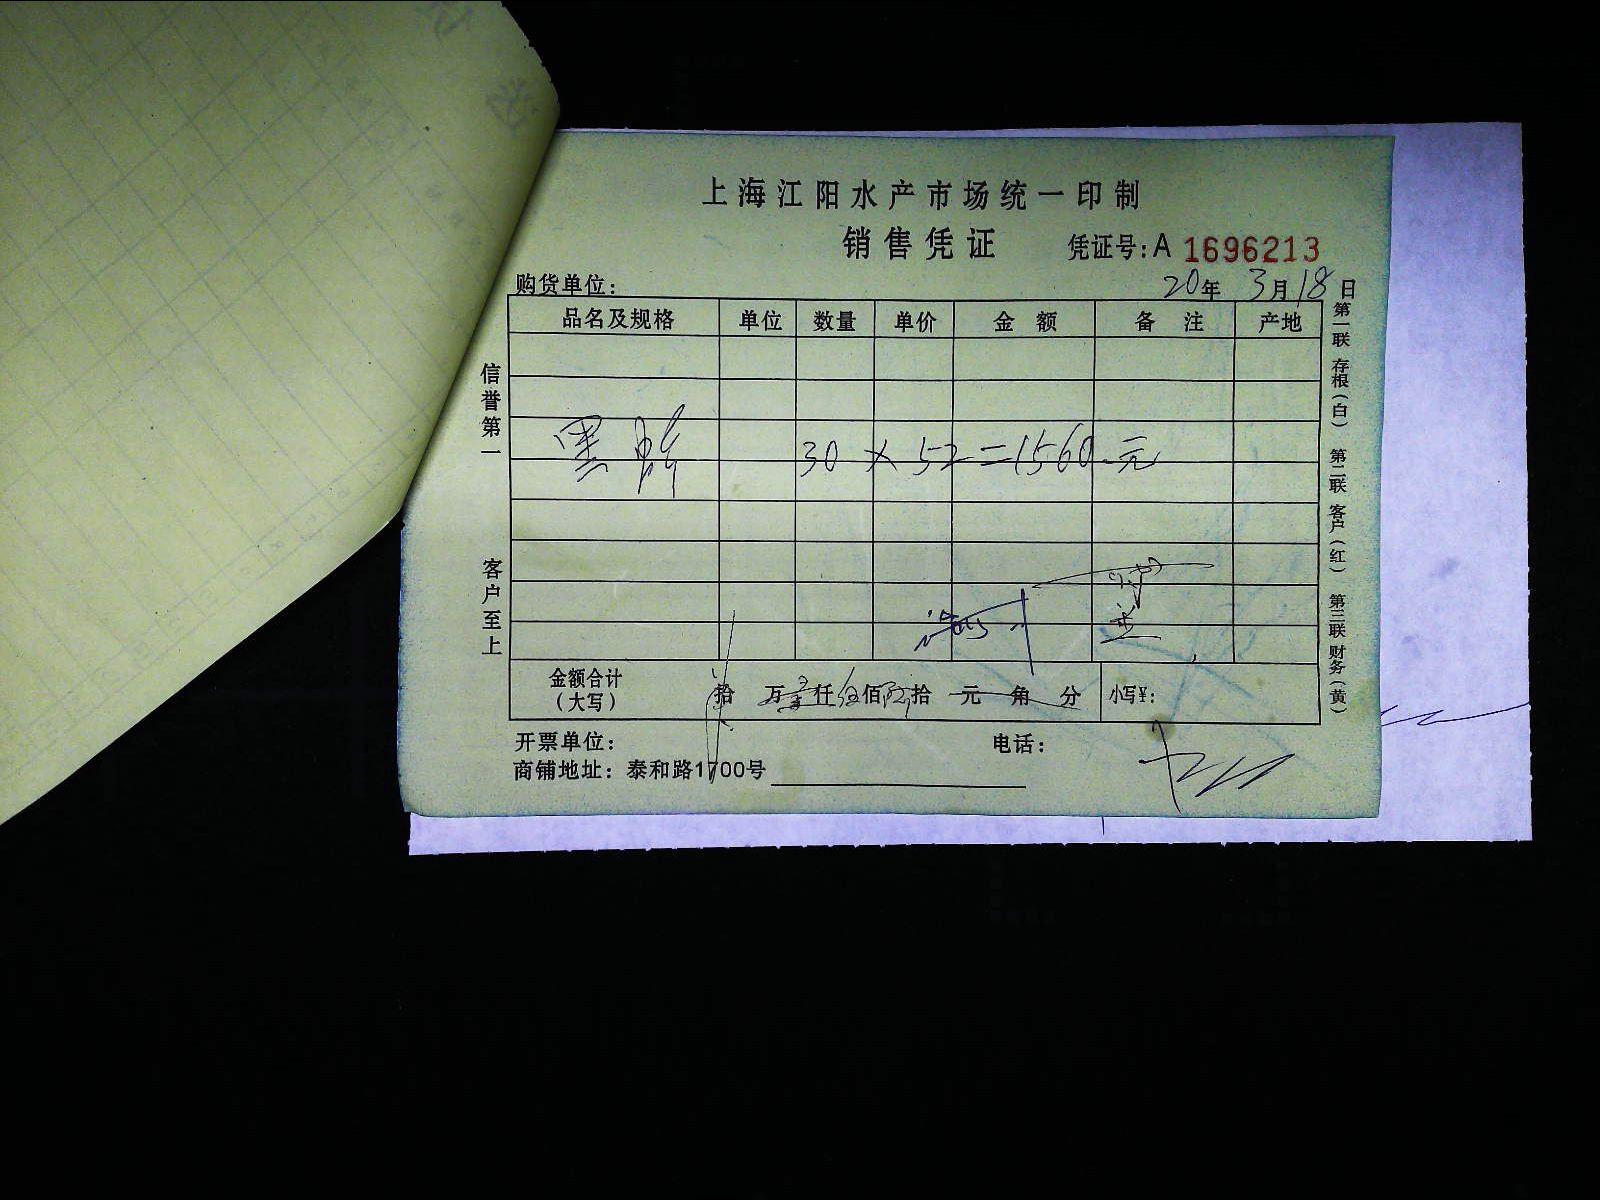 上海江阳水产市场统一印制
销售凭证 凭证号:A 1696213
购货单位: 20年 3月18日
品名及规格 单位 数量 单价 金额 备注 产地
黑 30 × 52 = 1560 元
金额合计(大写) 拾 万 壹仟 伍佰 陆拾 元 角 分 小写¥:
开票单位: 电话:
商铺地址: 泰和路1700号
信誉第一
客户至上
第一联 存根(白) 第二联 客户(红) 第三联 财务(黄)